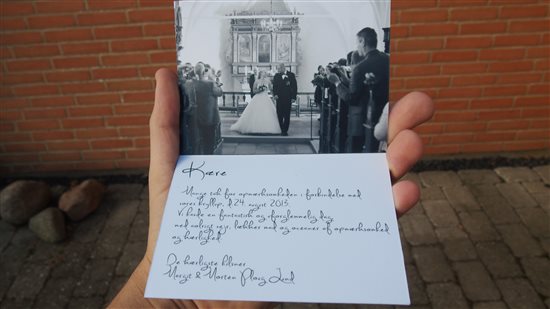 Kære
Mange tak for opmærksomheden i forbindelse med
vores bryllup, d 24. august 2013.
Vi havde en fantastisk og uforglemmelig dag,
med udsigt rejs, lækker mad og masser af opmærksomhed
og kærlighed.
De kærligste hilsner
Margit & Morten Ploug Lund